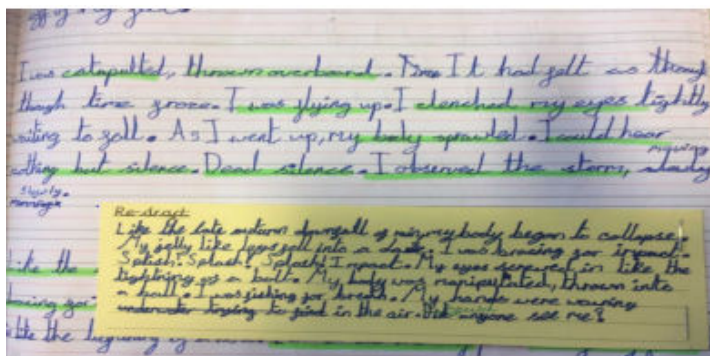 my
I was catapulted, thrown overboard. Time It had felt as though
though time froze. I was flying up. I clenched my eyes tightly
waiting to fall. As I went up, my body sprawled. I could hear
nothing but silence. Dead silence. I observed the storm, slowly
moving
slowly.
Re-draft
Like the late autumn downfall of my body began to collapse.
My jelly like legs fell into a daze. I was bracing for impact.
Splish! Splash! Splosh! Impact. My eyes screwed in like the
tightning of a bolt. My body was manipulated, thrown into
a ball. I was fishing for breath. My hands were waving
underwater trying to find in the air. Did anyone see me?
like the
the beginning of